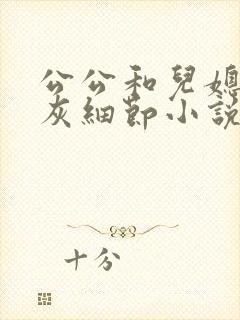 公公和兒媳
灰細節小說
十分